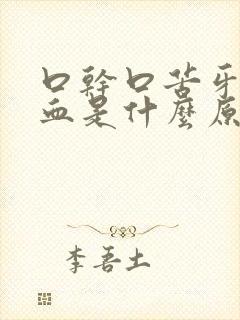 口幹口苦牙
血是什麼原
李吾土